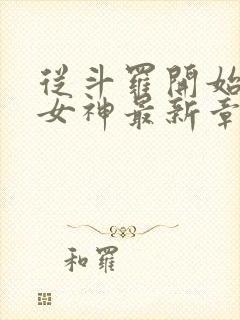 從斗羅開始
女神最新章
和羅